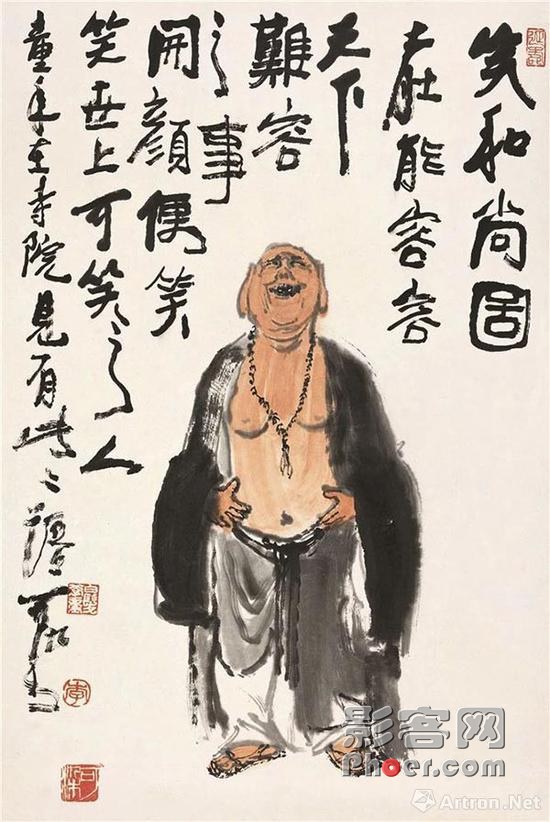 笑和尚圖
大肚能容容
天下
難容
之事
開顏便笑
笑世上可笑之人
童年在寺院見有此
李
可染
影客网
Phoer.com
Artron.Net